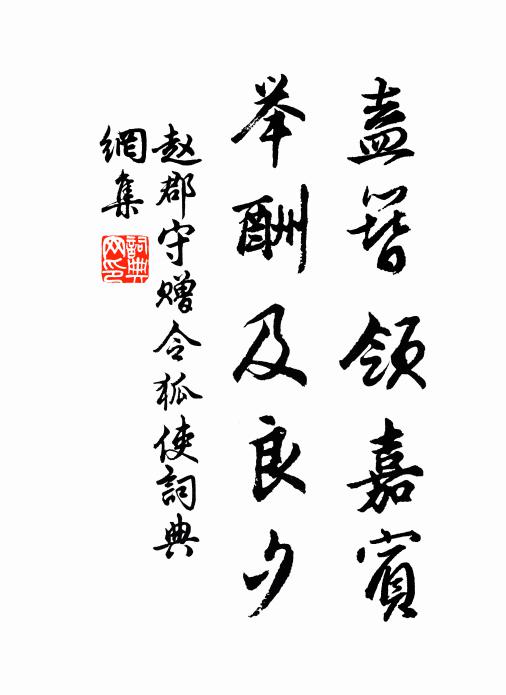 盍簪领嘉賓
举酬及良夕
赵郡守赠令狐使詞典
網集
詞典网印